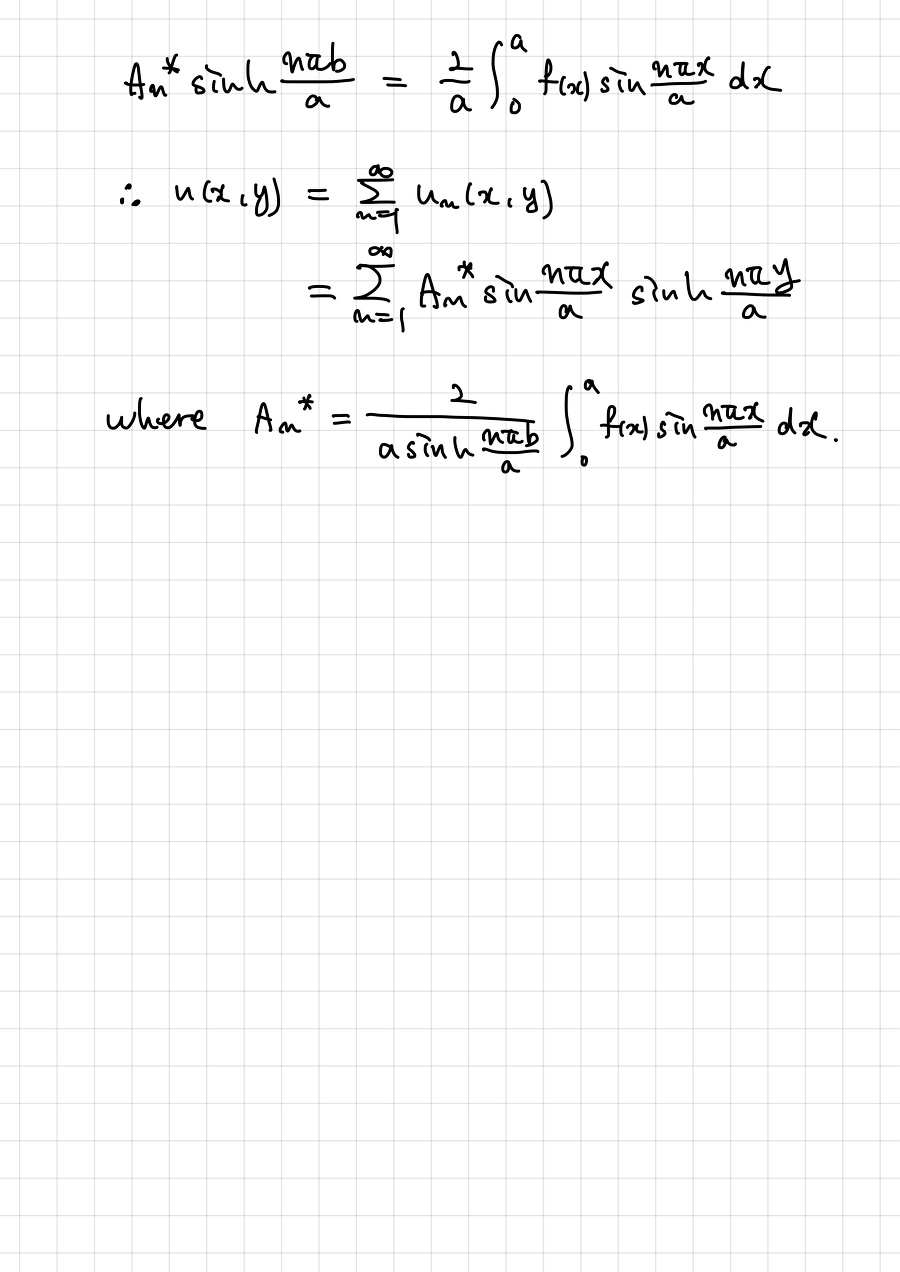 Aₙ* sinh nπb/a = 2/a ∫₀ᵃ f(x) sin nπx/a dx
∴ u(x,y) = ∑ₙ₌₁^∞ uₙ(x,y)
= ∑ₙ₌₁^∞ Aₙ* sin nπx/a sinh nπy/a
where Aₙ* = 2/(a sinh nπb/a) ∫₀ᵃ f(x) sin nπx/a dx.